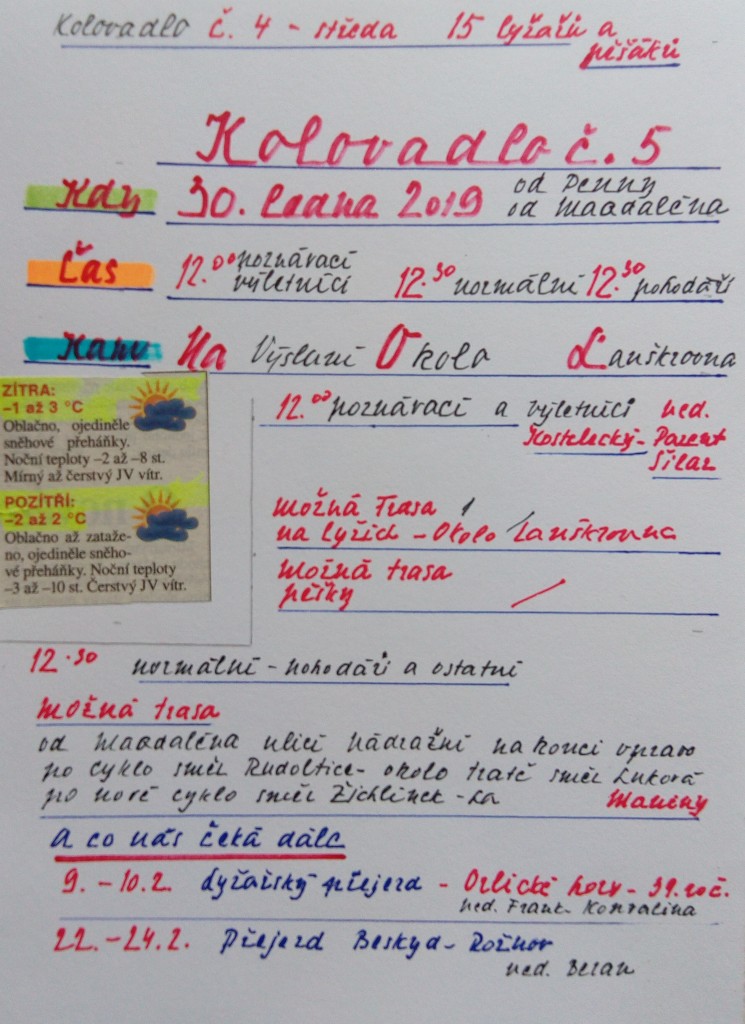 Kolovadlo č. 4 - středa 15 lyžařů a
pěšáků
Kolovadlo č. 5
Kdy 30. ledna 2019 od Penny
od Magdaléna
Čas 12.00 poznávací
výletníci 12.30 normální 12.30 pohodáři
Kam Na Výsluní Okolo Lanškrouna
ZÍTRA:
–1 až 3 °C
Oblačno, ojediněle
sněhové přeháňky.
Noční teploty –2 až –8 st.
Mírný až čerstvý JV vítr.
POZÍTŘÍ:
–2 až 2 °C
Oblačno až zataže-
no, ojediněle sněho-
vé přeháňky. Noční teploty
–3 až –10 st. Čerstvý JV vítr.
12.00 poznávací a výletníci ved.
Kostelecký - Parent
Šilar
možná Trasa
na lyžích - Okolo Lanškrouna
možná trasa
pěšky
12.30 normální - pohodáři a ostatní
možná trasa
od Magdaléna ulicí Nádražní na konci vpravo
po cyklo směr Rudoltice - okolo tratě směr Luková
po nové cyklo směr Žichlínek - La Maniny
A co nás čeká dále
9. - 10.2. Lyžařský přejezd - Orlické hory - 39. roč.
ved. Frank - Konvalina
22. - 24.2. Přejezd Beskyd - Rožnov
ved. Beran